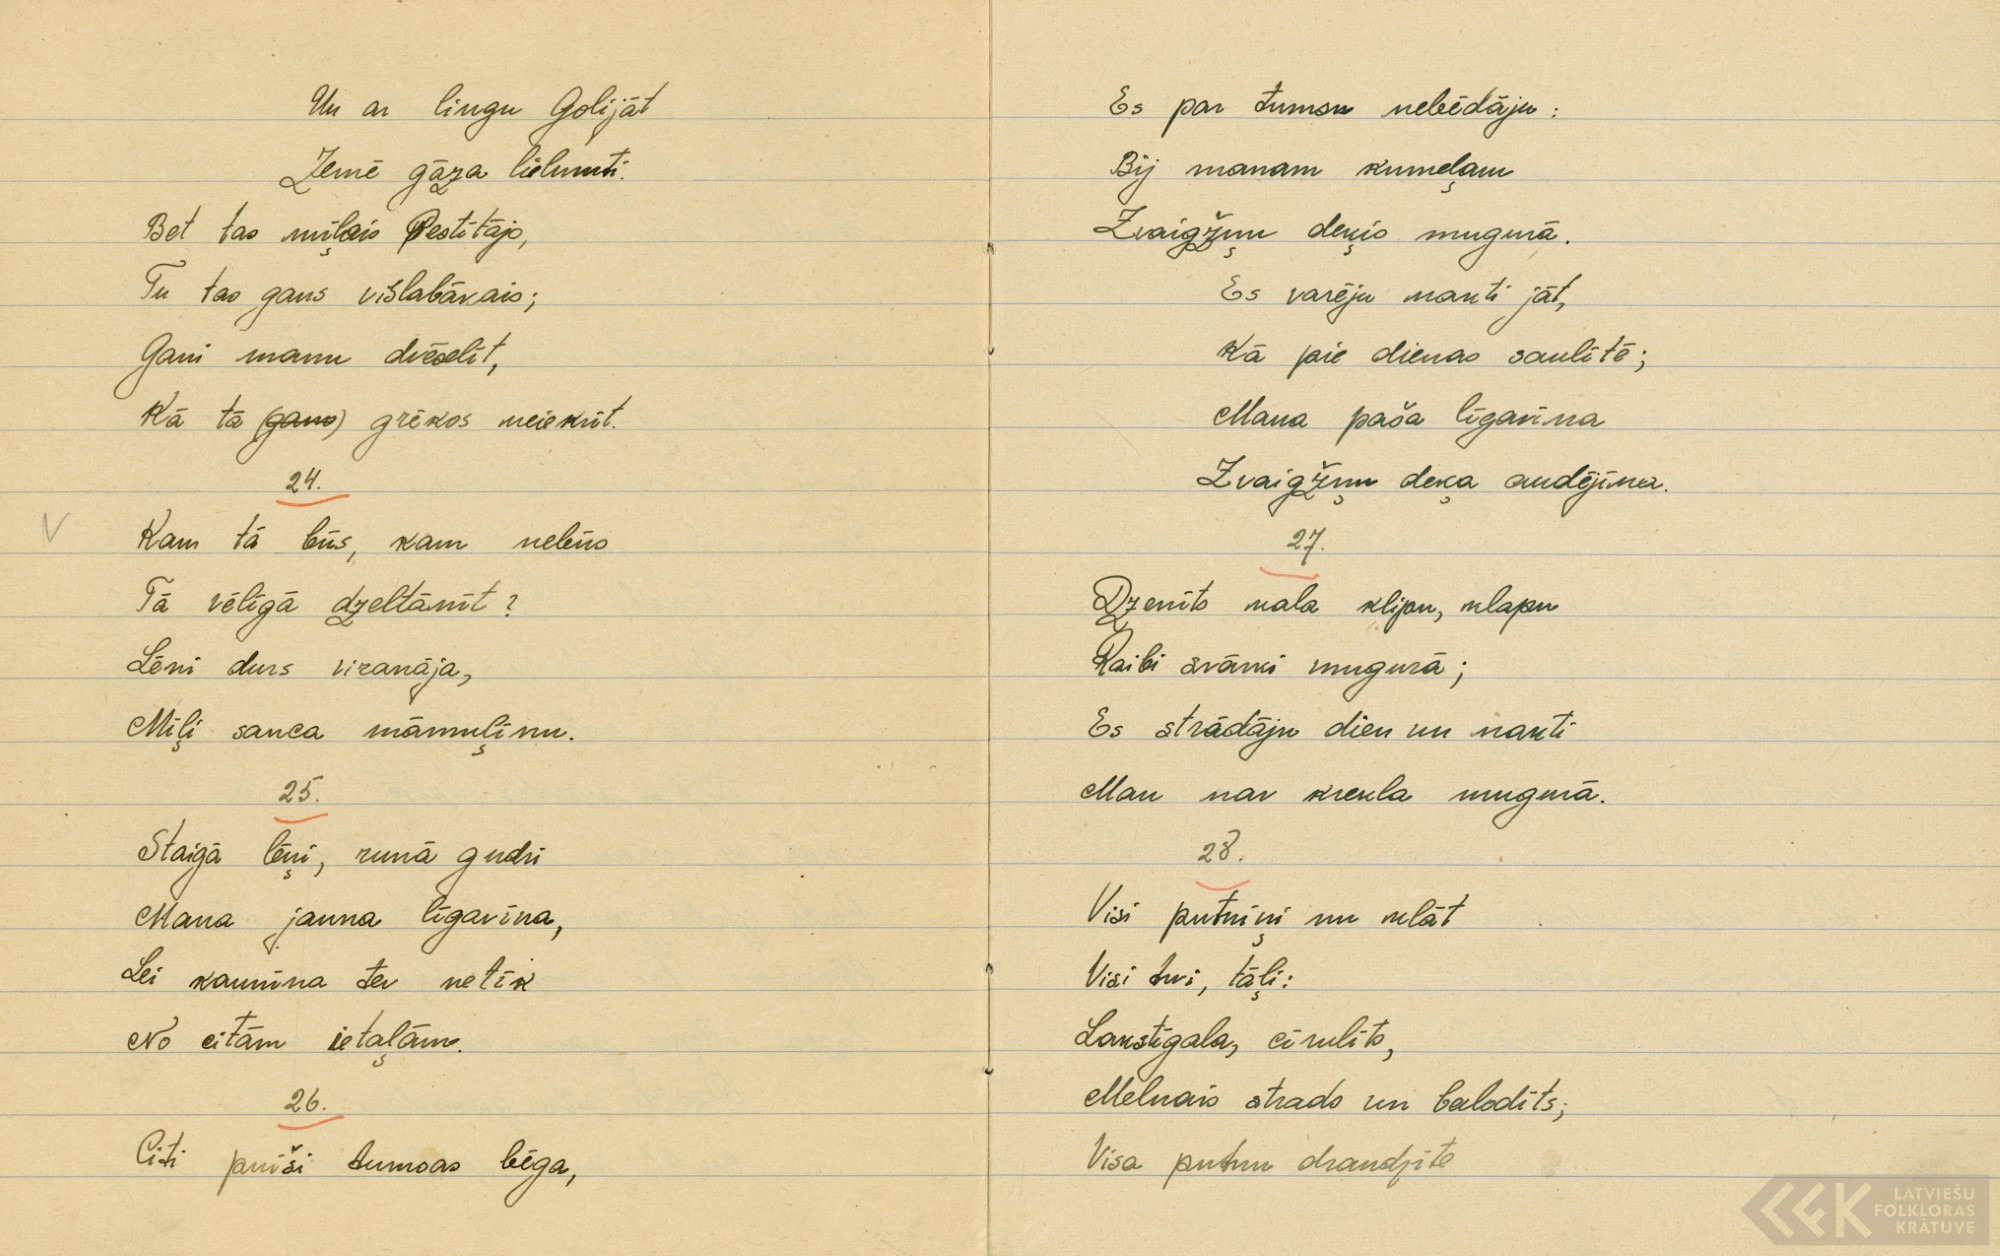 Un ar lingu Golijāt
Zemē gāza lielmuti.
Bet tas mīļais Pestītājs,
Tu tas gans vislabākais;
Gani manu dvēselīt,
Kā tā (gans) grēkos neiekrīt.
24.
V
Kam tā būs, kam nebūs
Tā vēlīgā dzeltānīt?
Lēni durs viranāja,
Mīļi sauca māmuļīnu.
25.
Staigā lēņi, runā gudri
Mana jauna līgavīna,
Lei kaunīna tev netīk
No citām ietaļām.
26.
Citi puiši tumsas bēga,
Es par tumsu nebēdāju:
Bij manam kumeļam
Zvaigžņu deķis mugurā.
Es varēju nakti jāt,
Kā pie dienas saulītē;
Mana paša līgavīna
Zvaigžņu deķa audējīna.
27.
Dzenīts kala klipu, klapu
Raibi svārki mugurā;
Es strādāju dien un nakti
Man nav krekla mugurā.
28.
Visi putniņi nu klāt
Visi tuvi, tāļi:
Lakstīgala, cīrulīts,
Melnais strads un balodīts;
Visa putnu draudzīte
LATVIEŠU
FOLKLORAS
KRĀTUVE